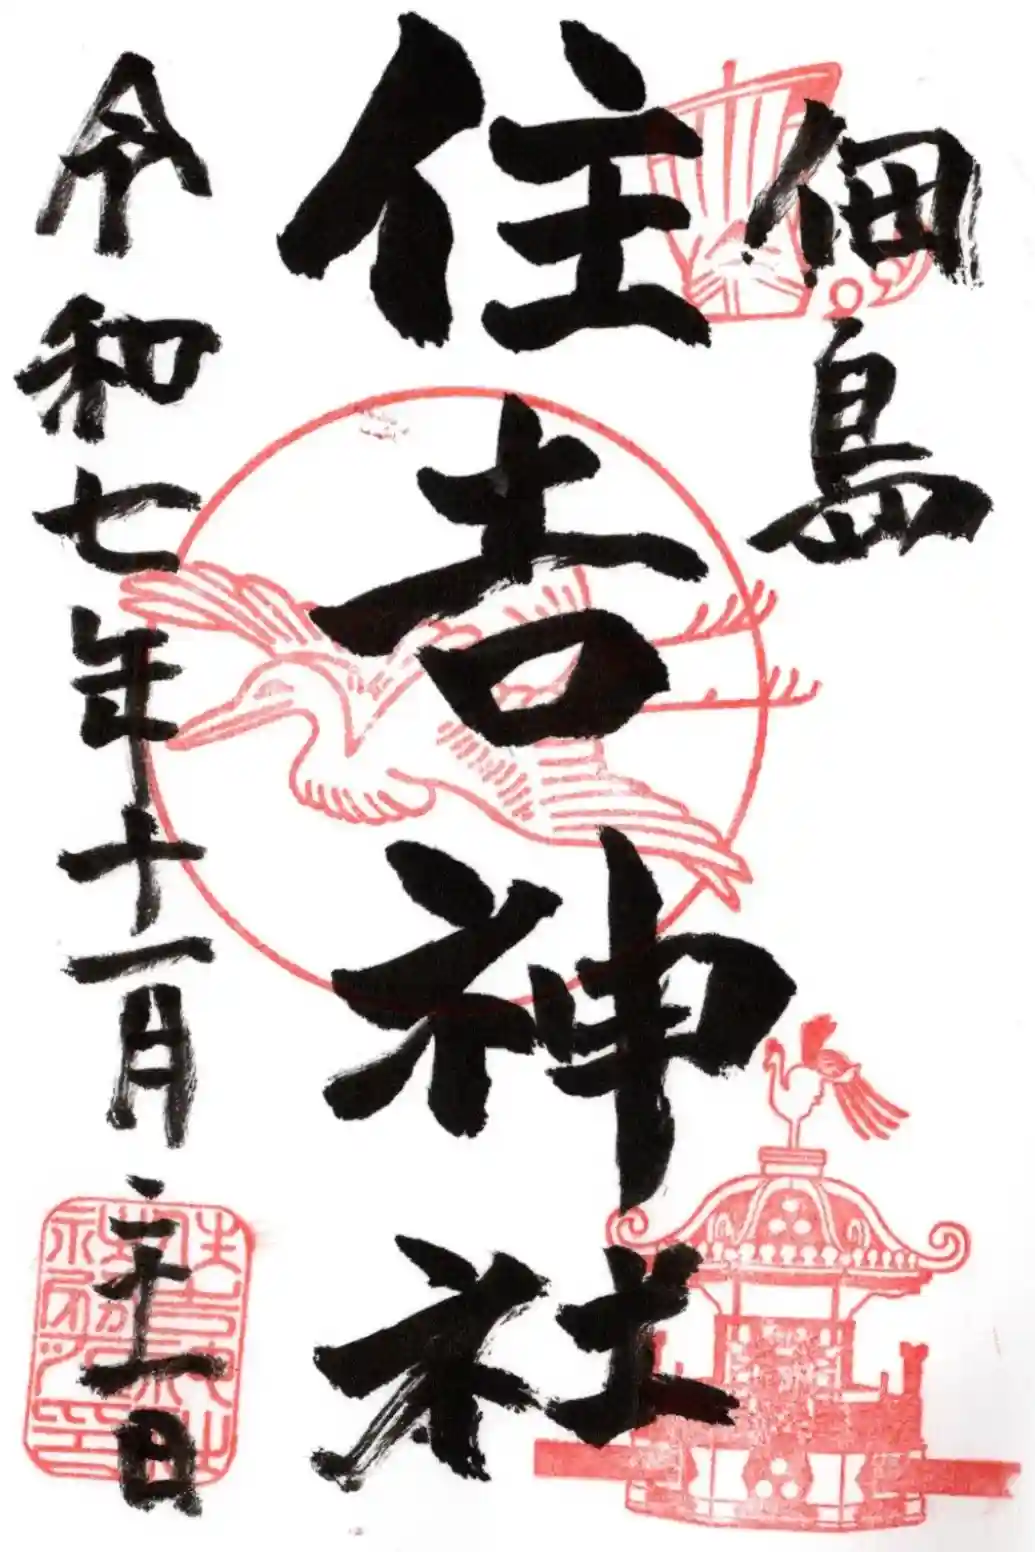 佃島
住吉神社
令和七年十一月二十一日